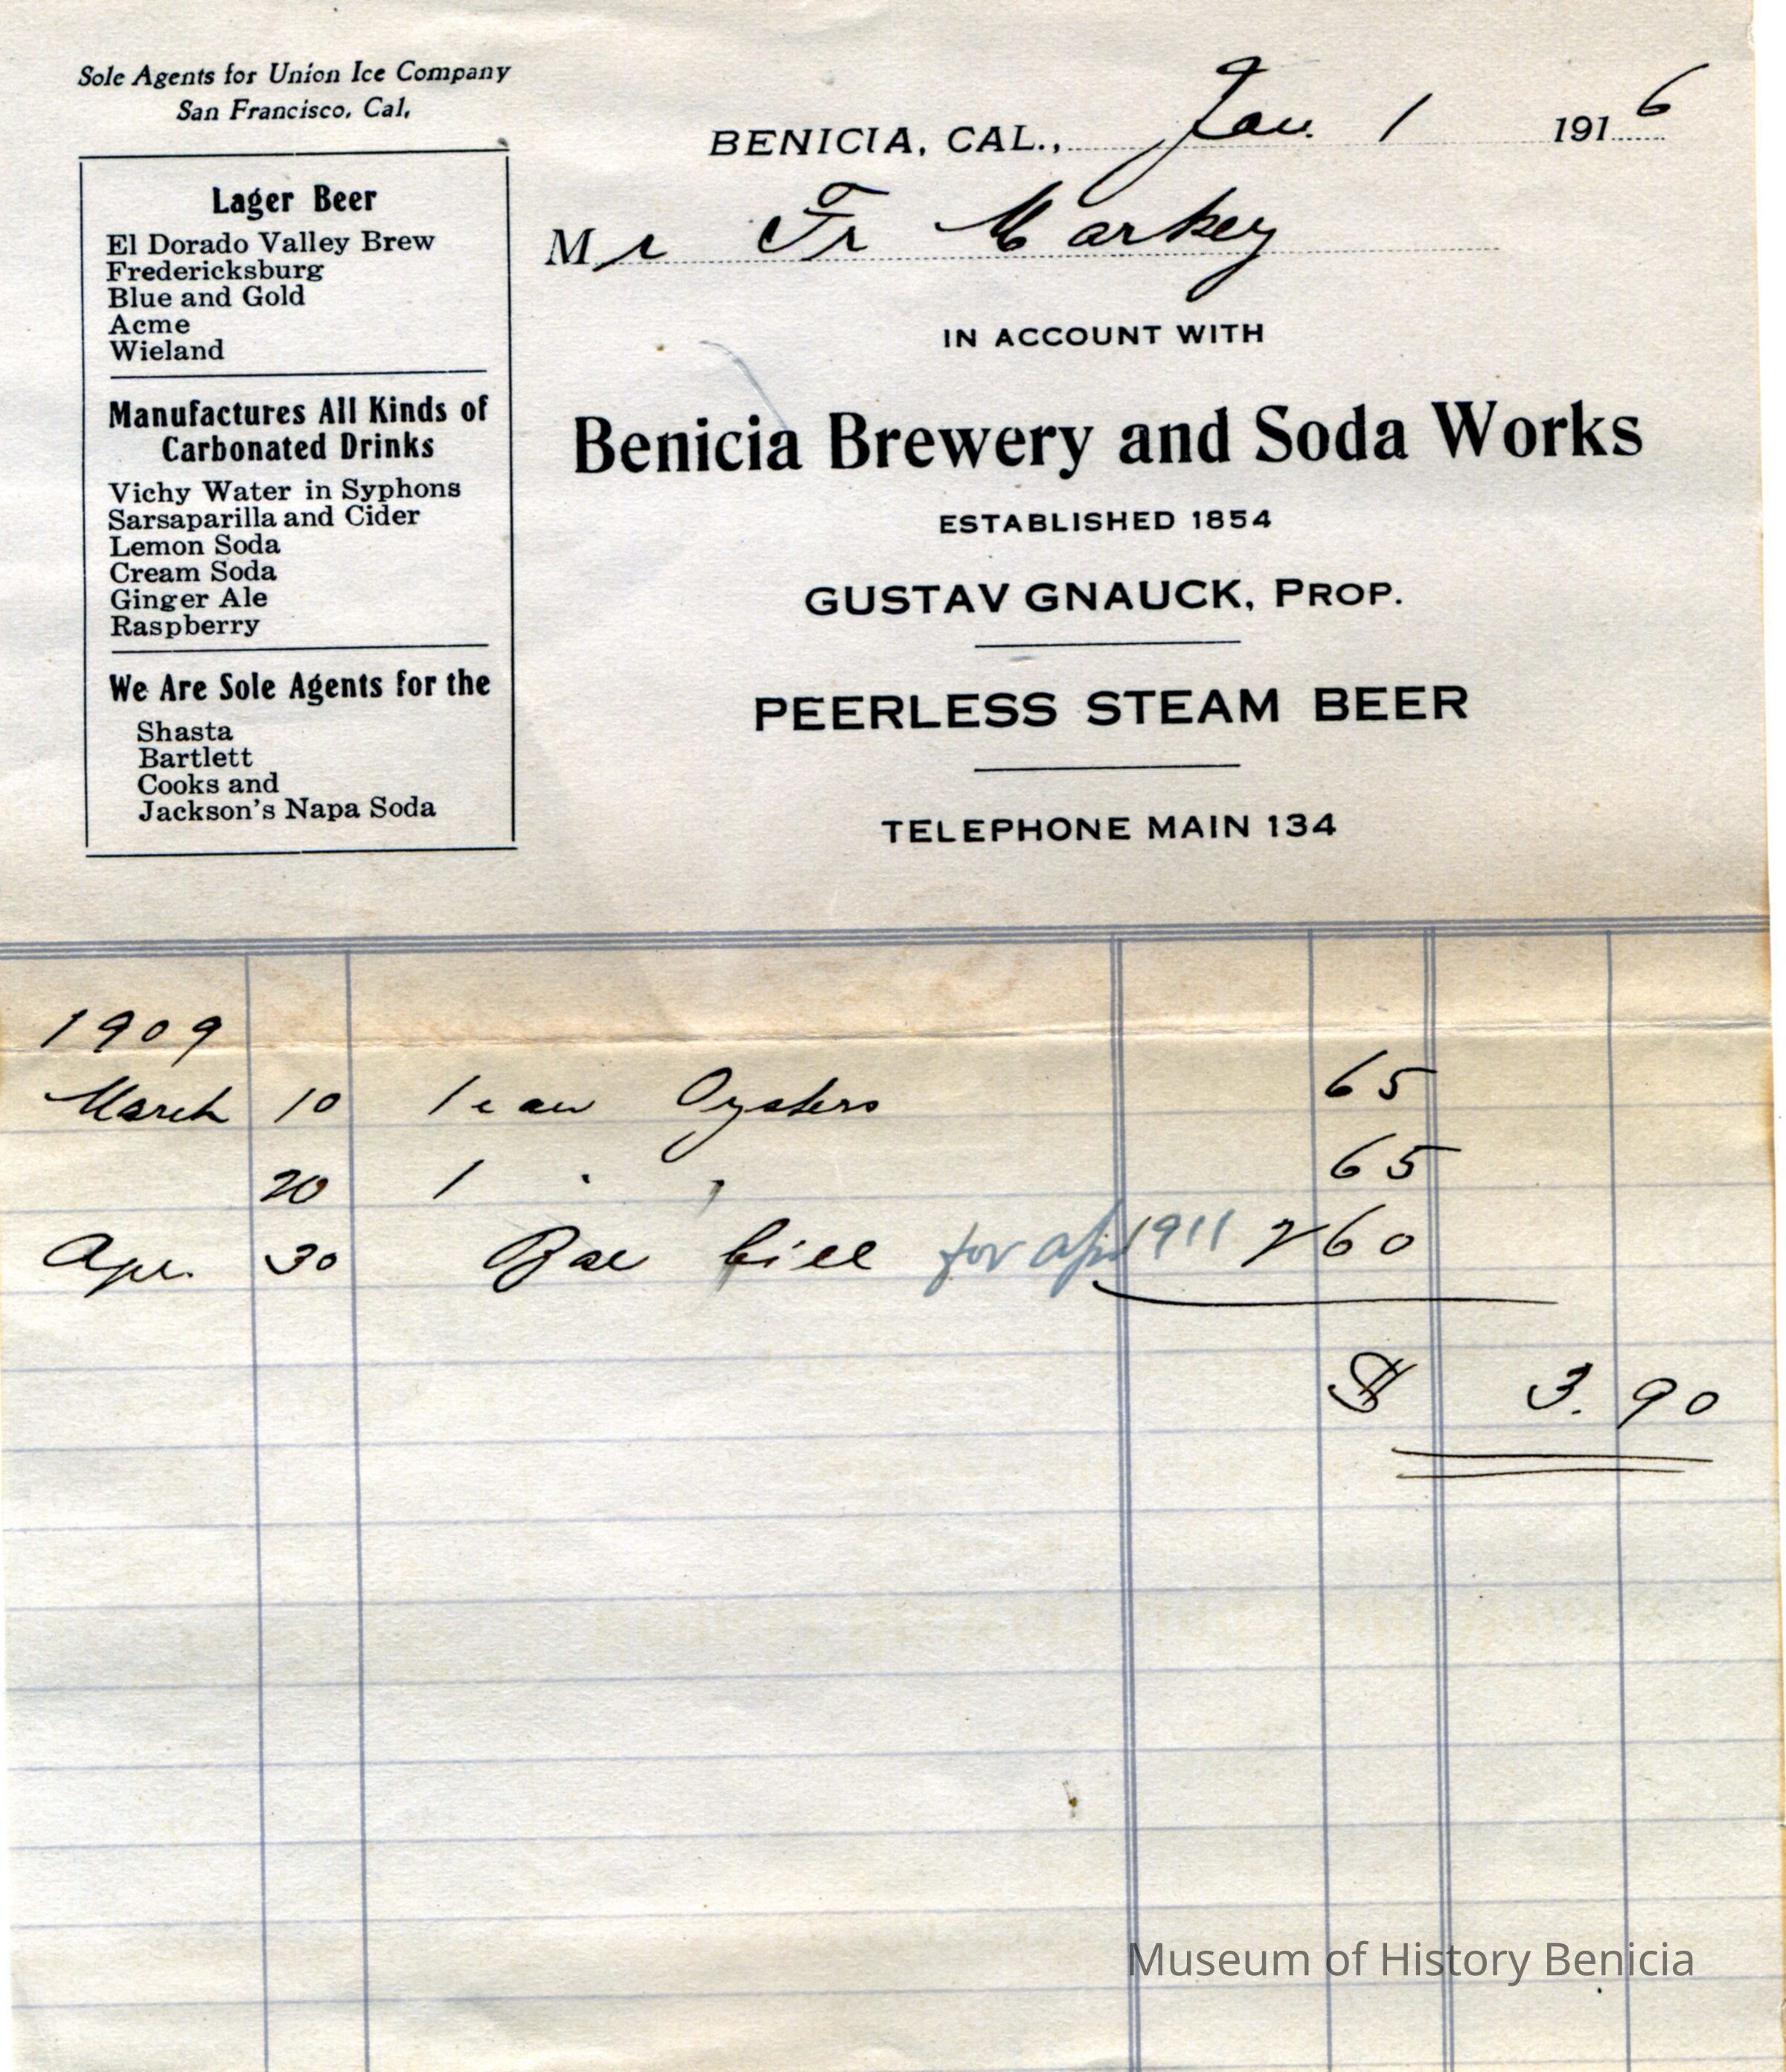 Sole Agents for Union Ice Company
San Francisco, Cal,
BENICIA, CAL., Jan. 1 1916
Mr Fr Markey
IN ACCOUNT WITH
Benicia Brewery and Soda Works
ESTABLISHED 1854
GUSTAV GNAUCK, PROP.
PEERLESS STEAM BEER
TELEPHONE MAIN 134
Lager Beer
El Dorado Valley Brew
Fredericksburg
Blue and Gold
Acme
Wieland
Manufactures All Kinds of
Carbonated Drinks
Vichy Water in Syphons
Sarsaparilla and Cider
Lemon Soda
Cream Soda
Ginger Ale
Raspberry
We Are Sole Agents for the
Shasta
Bartlett
Cooks and
Jackson's Napa Soda
1909
March 10 1 can Oysters 65
20 1 " " 65
Apr. 30 Bal bill for apr 1911 2 60
$ 3.90
Museum of History Benicia